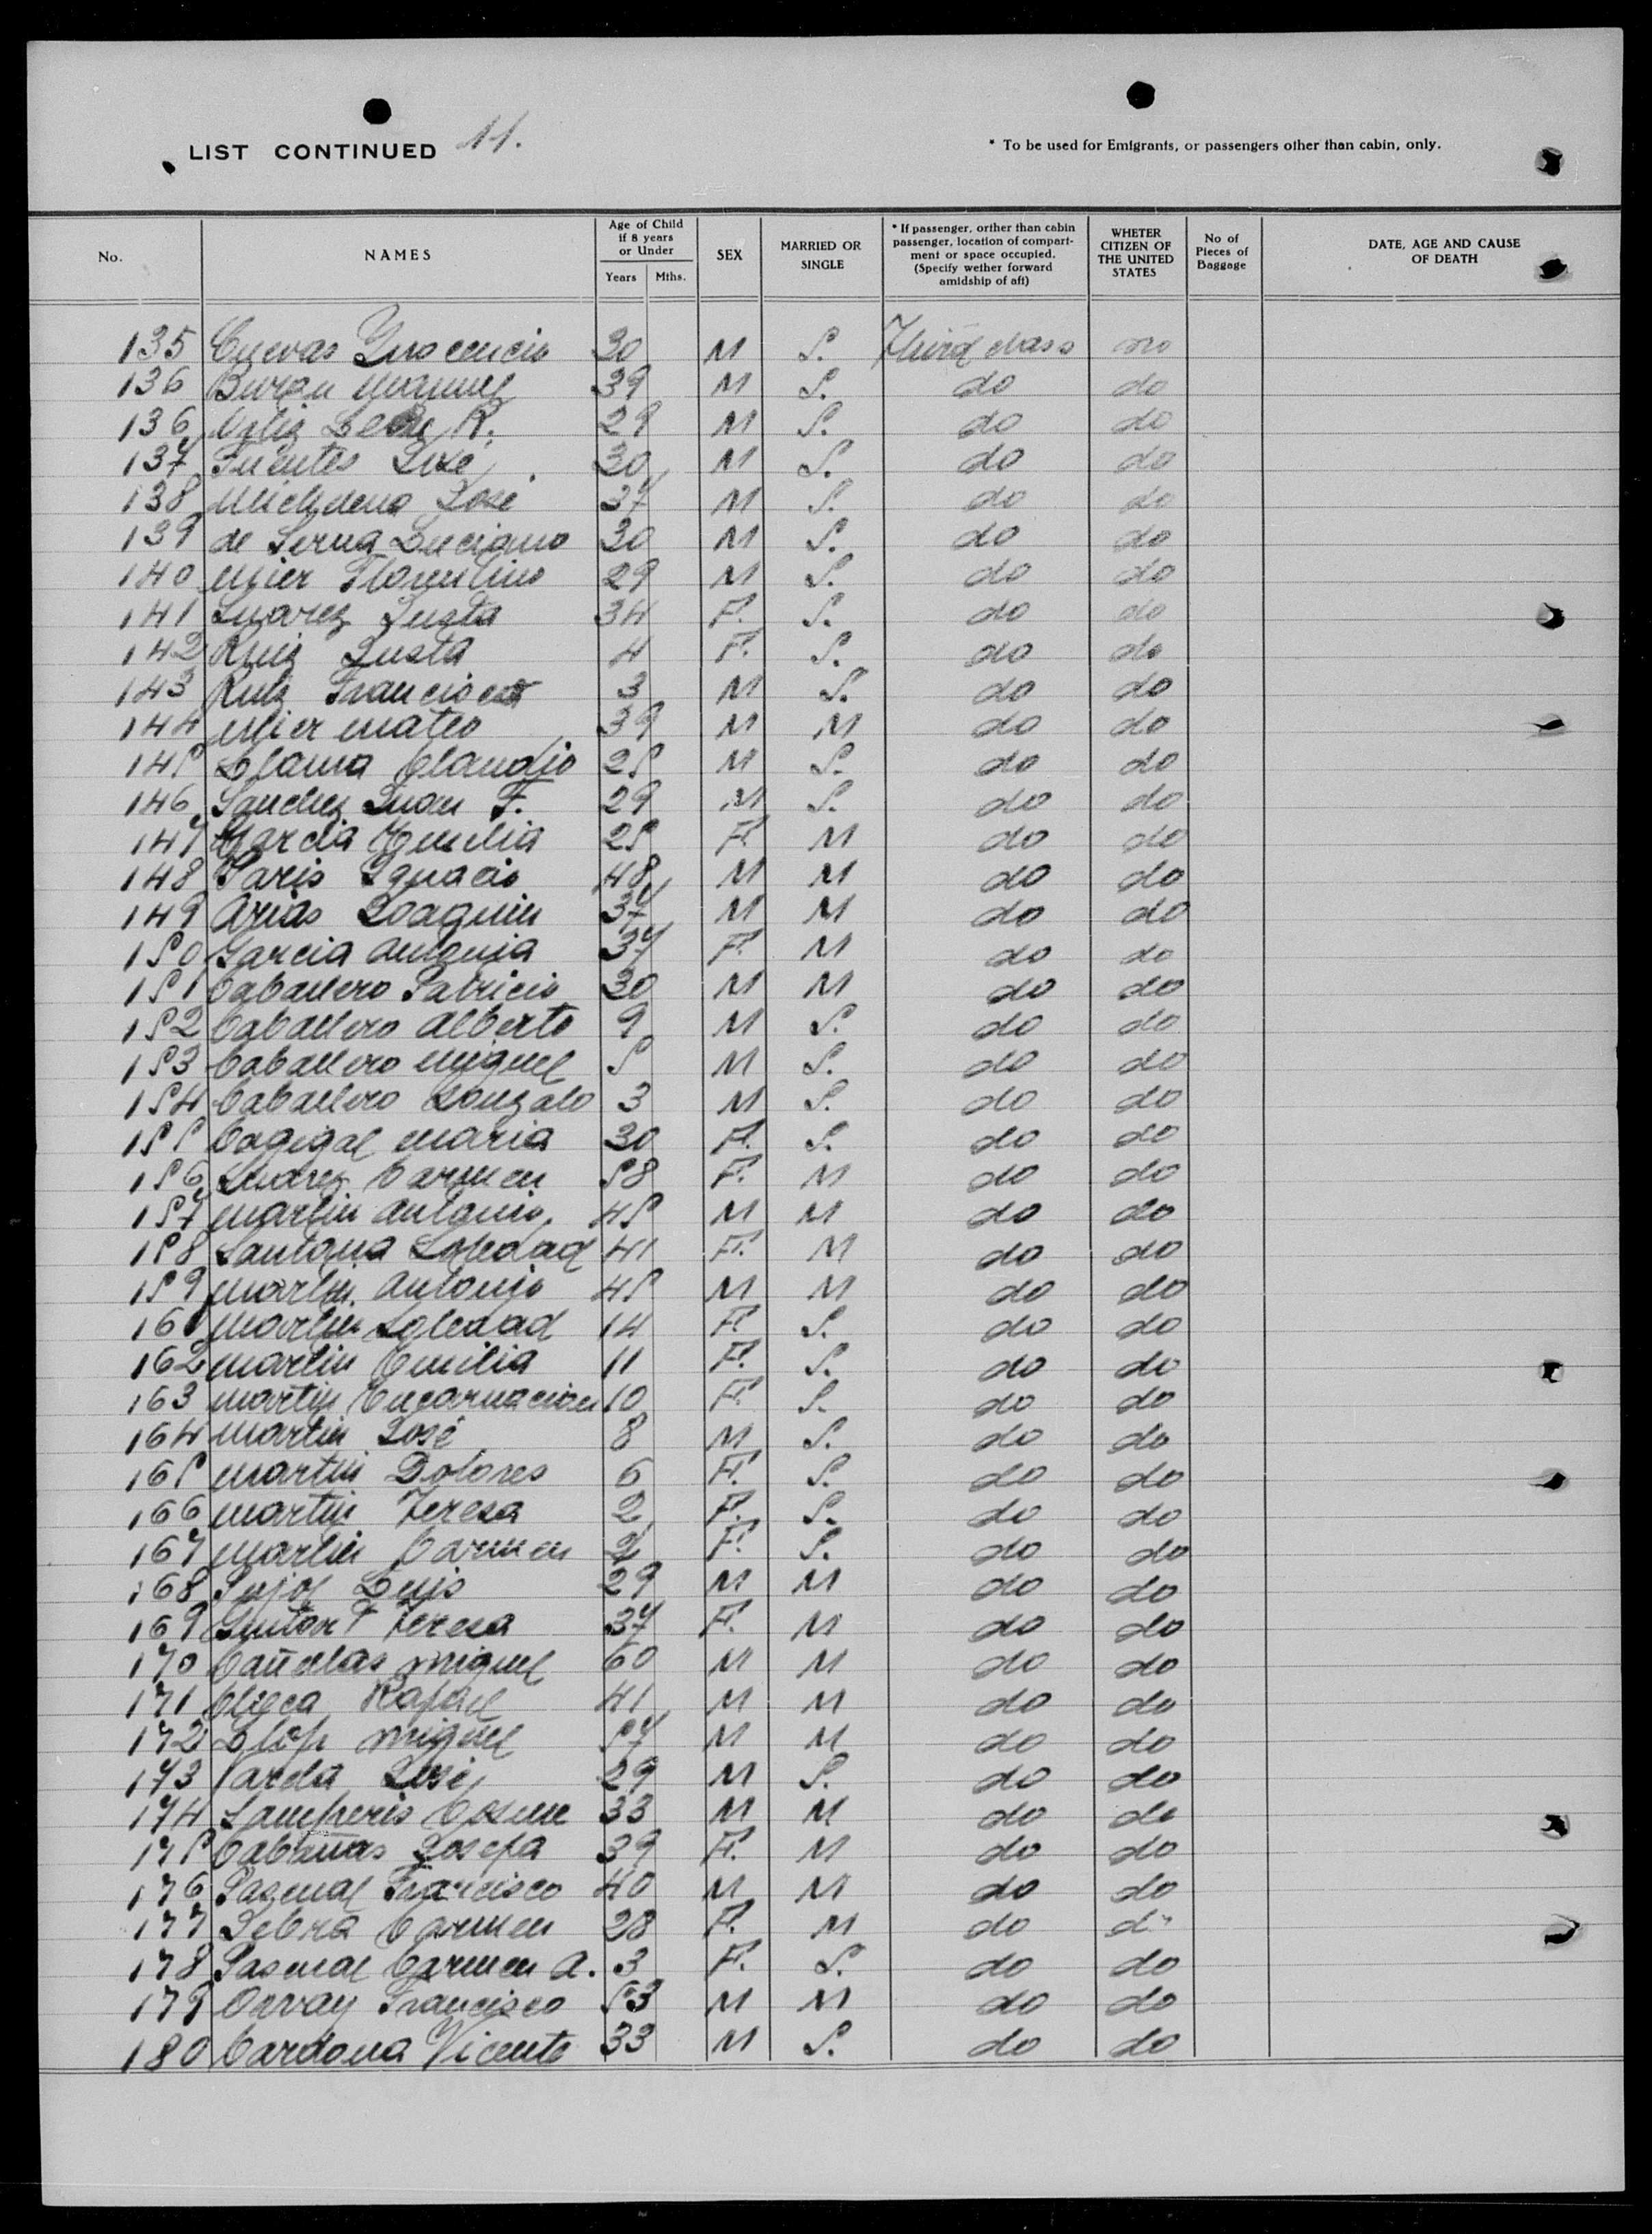 LIST CONTINUED 11.
* To be used for Emigrants, or passengers other than cabin, only.
No. NAMES Age of Child if 8 years or Under Years Mths. SEX MARRIED OR SINGLE * If passenger, orther than cabin passenger, location of compartment or space occupied. (Specify wether forward amidship of aft) WHETER CITIZEN OF THE UNITED STATES No of Pieces of Baggage DATE, AGE AND CAUSE OF DEATH
135 Cuevas Ynocencio 30 M S. Third class no
136 Manuel 39 M S. do do
136 R. 29 M S. do do
137 Fuentes José 30 M S. do do
138 Michelena José 37 M S. do do
139 de Serna Luciano 30 M S. do do
140 Mier Florentino 29 M S. do do
141 Suarez Justa 34 F. S. do do
142 Ruiz Justa 4 F. S. do do
143 Ruiz Francisco 3 M S. do do
144 Mier Mateo 39 M M do do
145 Llama Claudio 25 M S. do do
146 Sanchez Juan F. 29 M S. do do
147 Garcia Emilia 25 F. M do do
148 Paris Ignacio 48 M M do do
149 Arias Joaquin 37 M M do do
150 Garcia Antonia 37 F. M do do
151 Caballero Patricio 30 M M do do
152 Caballero Alberto 9 M S. do do
153 Caballero Miguel 5 M S. do do
154 Caballero Gonzalo 3 M S. do do
155 Cagigal Maria 30 F. S. do do
156 Suarez Carmen 58 F. M do do
157 Martin Antonio 45 M M do do
158 Santana Soledad 41 F. M do do
159 Martin Antonio 45 M M do do
160 Martin Soledad 14 F. S. do do
162 Martin Emilia 11 F. S. do do
163 Martin Encarnacion 10 F. S. do do
164 Martin José 8 M S. do do
165 Martin Dolores 6 F. S. do do
166 Martin Teresa 2 F. S. do do
167 Martin Carmen 2 F. S. do do
168 Pujol Luis 29 M M do do
169 Teresa 37 F. M do do
170 Cañellas Miguel 60 M M do do
171 Rafael 41 M M do do
172 Llop Miguel 57 M M do do
173 Varela José 29 M S. do do
174 Lamperis Cosme 33 M M do do
175 Cabañas Josefa 39 F. M do do
176 Pascual Francisco 40 M M do do
177 Carmen 28 F. M do do
178 Pascual Carmen A. 3 F. S. do do
179 Orvay Francisco 53 M M do do
180 Cardona Vicente 33 M S. do do